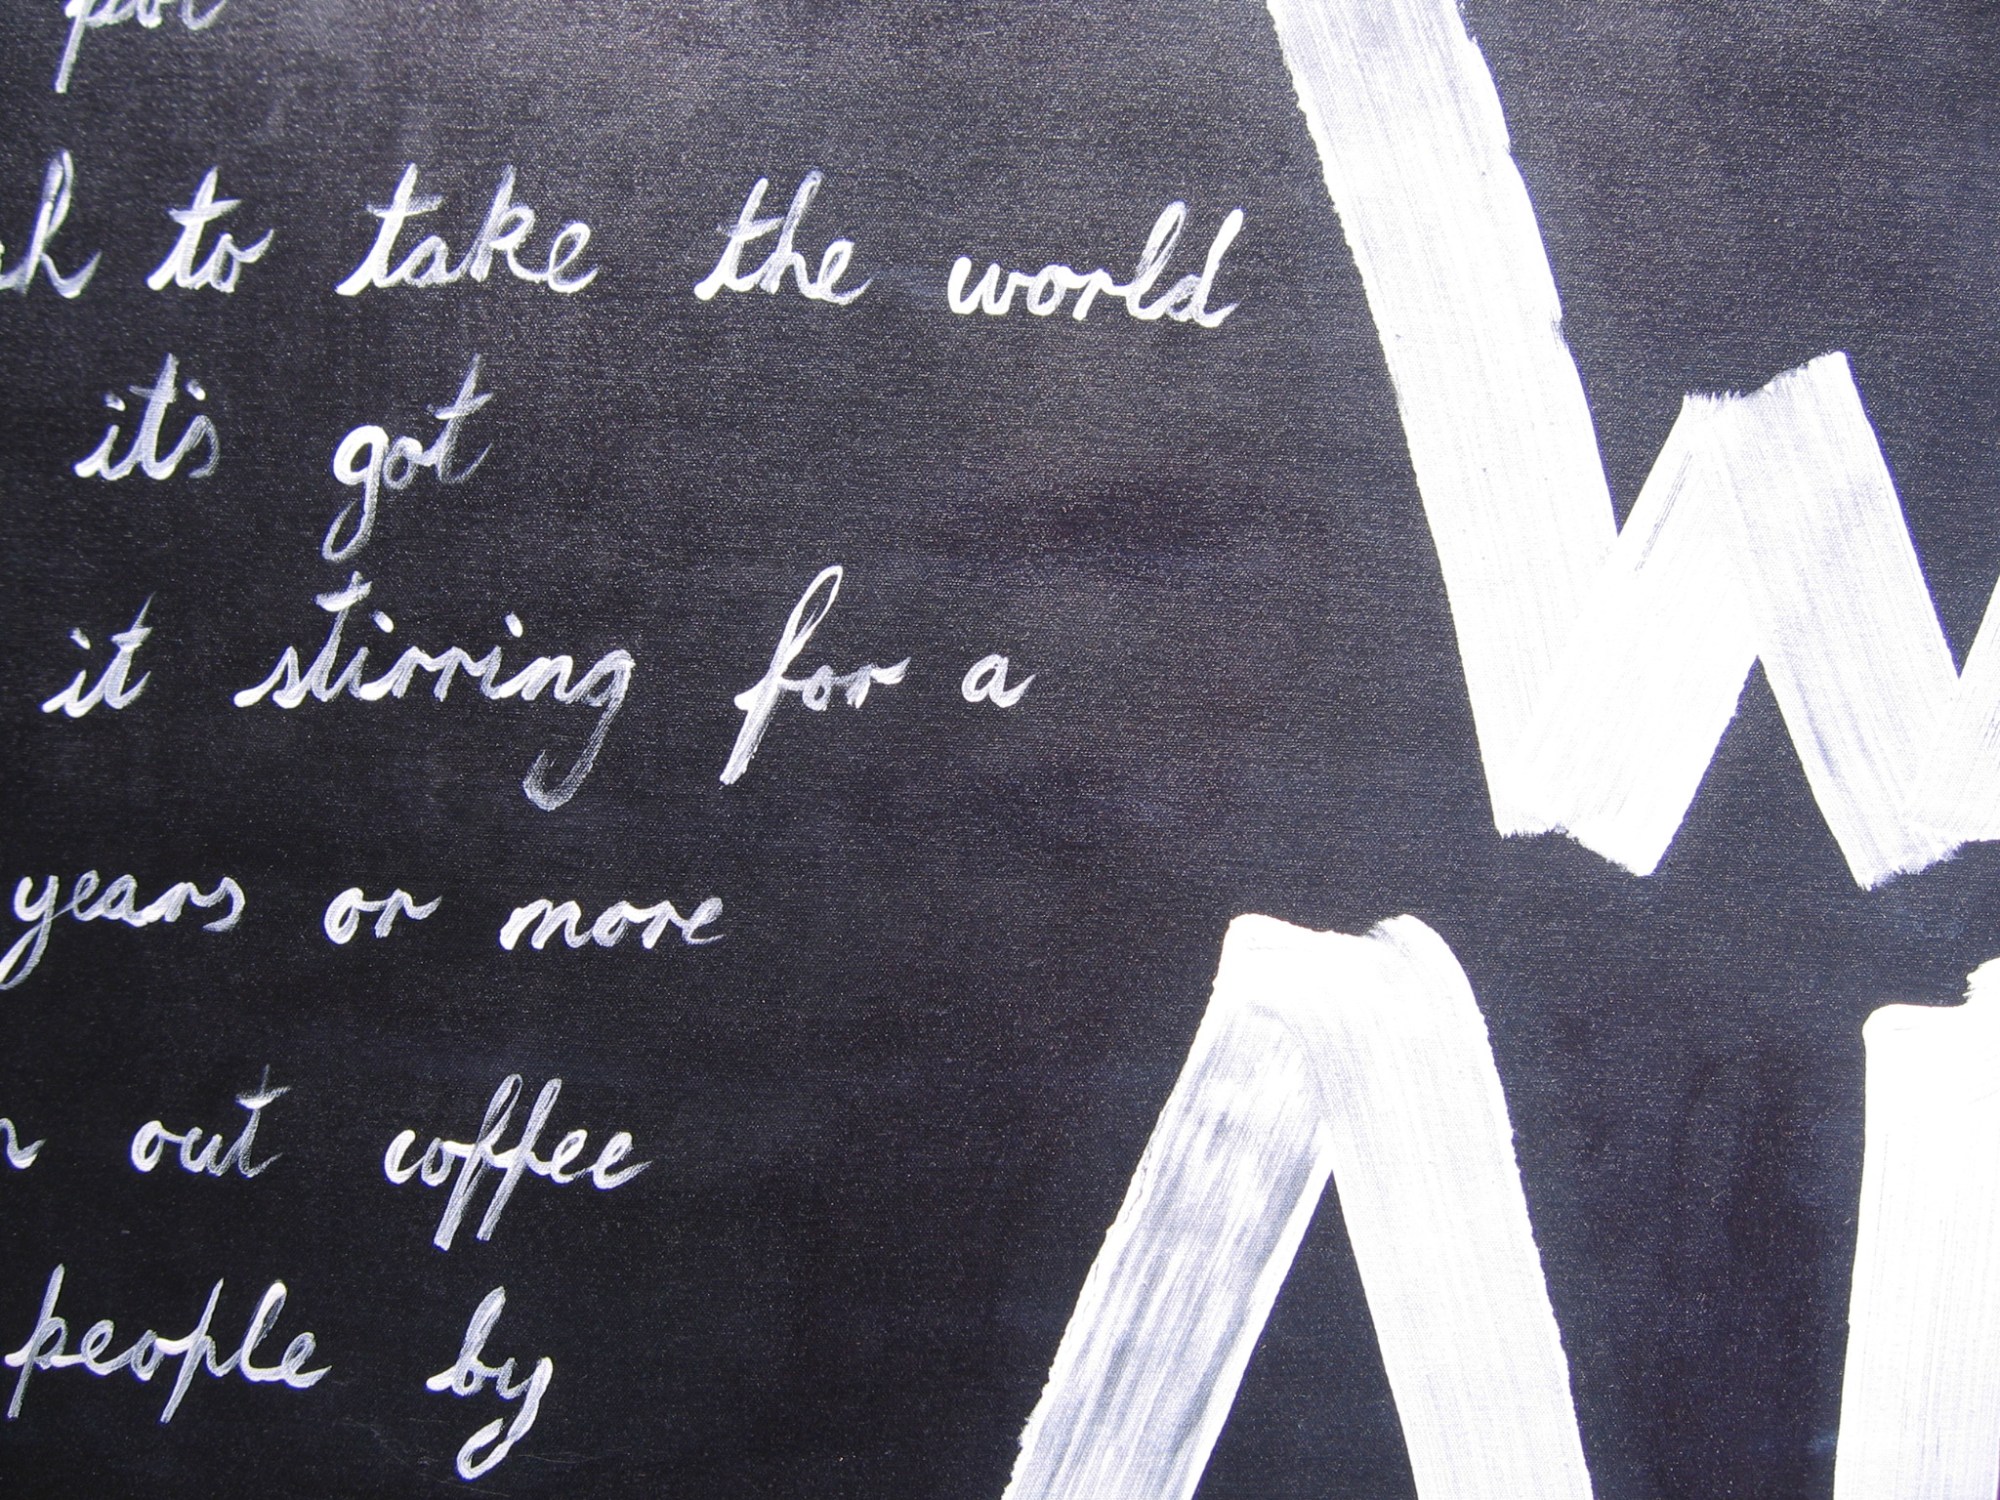 to take the world
it's got
it stirring for a
years or more
out coffee
people by
W